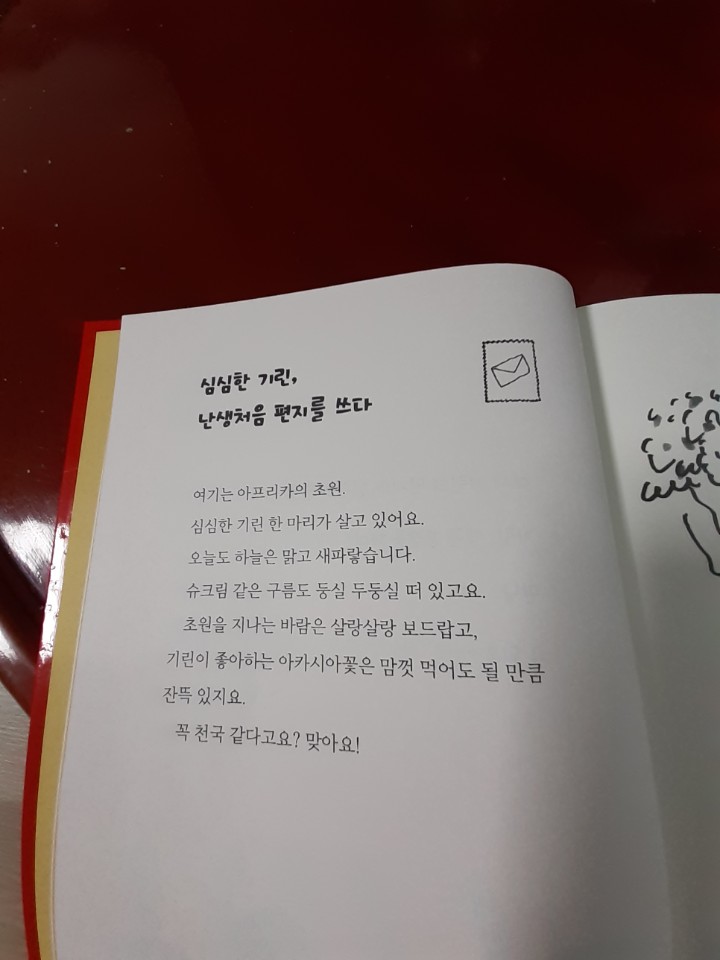 심심한 기린,
난생처음 편지를 쓰다
여기는 아프리카의 초원.
심심한 기린 한 마리가 살고 있어요.
오늘도 하늘은 맑고 새파랗습니다.
슈크림 같은 구름도 둥실 두둥실 떠 있고요.
초원을 지나는 바람은 살랑살랑 보드랍고,
기린이 좋아하는 아카시아꽃은 맘껏 먹어도 될 만큼
잔뜩 있지요.
꼭 천국 같다고요? 맞아요!